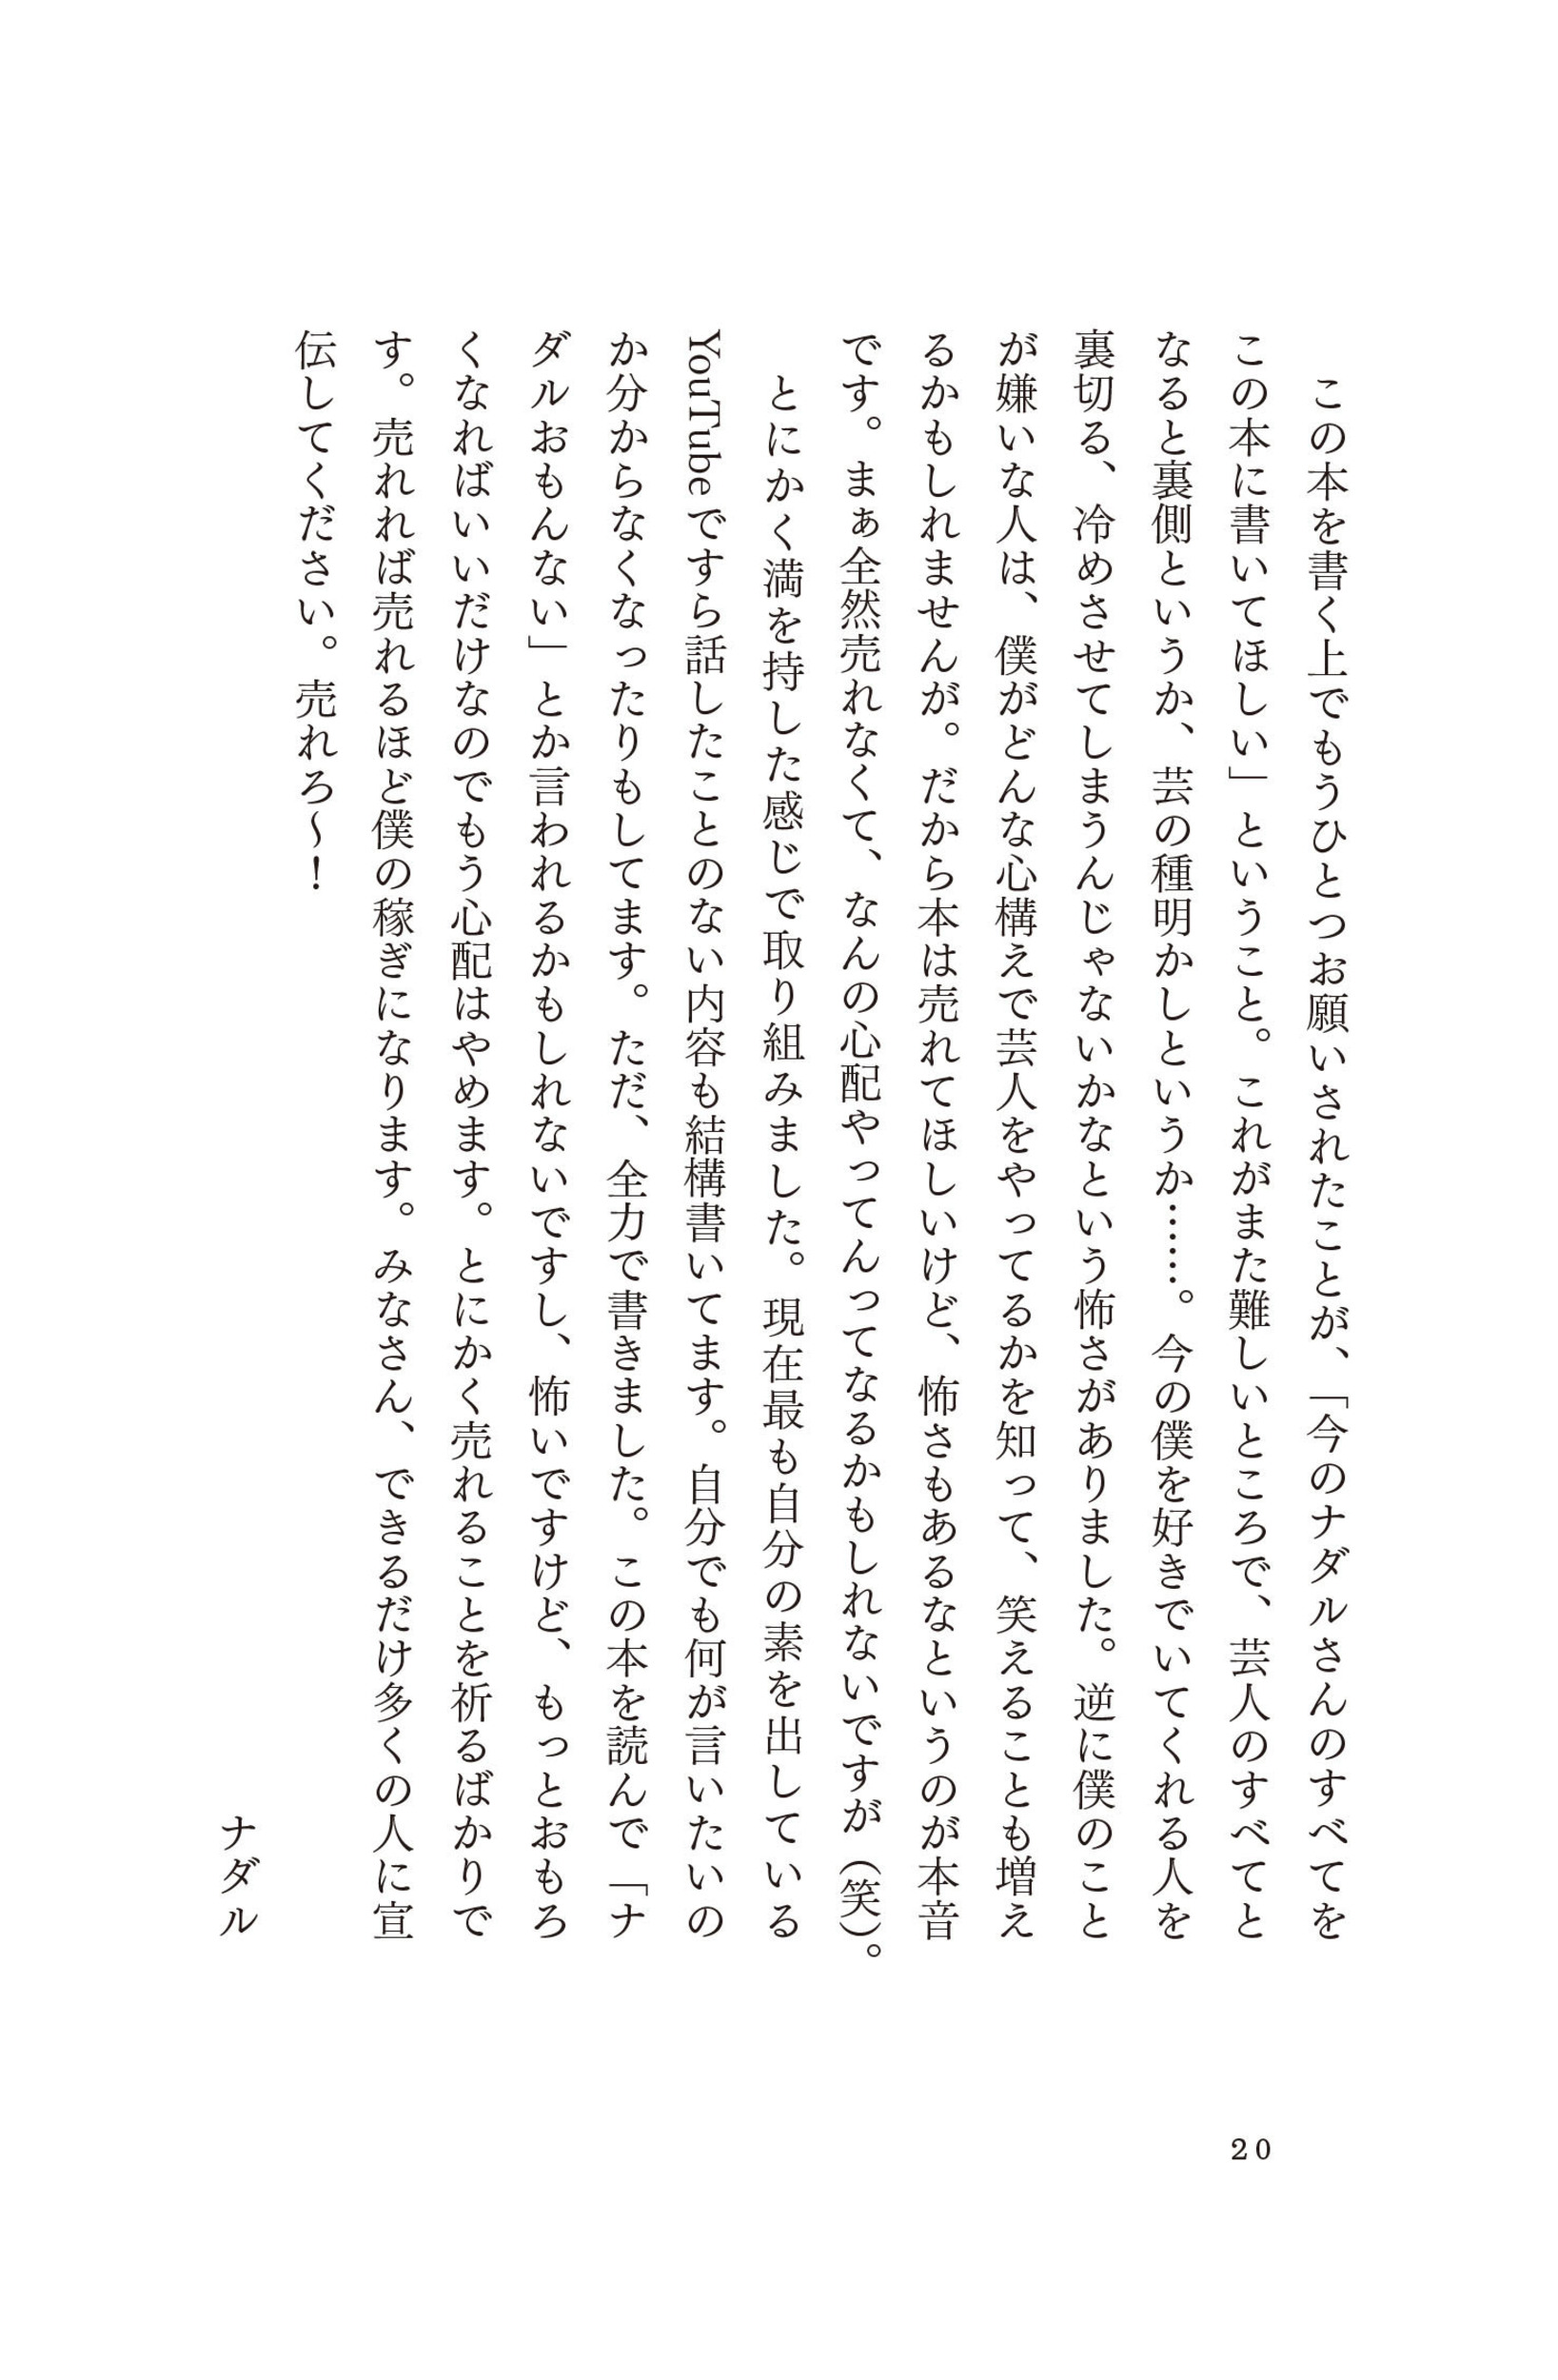 この本を書く上でもうひとつお願いされたことが、「今のナダルさんのすべてを
この本に書いてほしい」ということ。これがまた難しいところで、芸人のすべてと
なると裏側というか、芸の種明かしというか……。今の僕を好きでいてくれる人を
裏切る、冷めさせてしまうんじゃないかなという怖さがありました。逆に僕のこと
が嫌いな人は、僕がどんな心構えで芸人をやってるかを知って、笑えることも増え
るかもしれませんが。だから本は売れてほしいけど、怖さもあるなというのが本音
です。まぁ全然売れなくて、なんの心配やってんってなるかもしれないですが（笑）。
　とにかく満を持した感じで取り組みました。現在最も自分の素を出している
YouTubeですら話したことのない内容も結構書いてます。自分でも何が言いたいの
か分からなくなったりもしてます。ただ、全力で書きました。この本を読んで「ナ
ダルおもんない」とか言われるかもしれないですし、怖いですけど、もっとおもろ
くなればいいだけなのでもう心配はやめます。とにかく売れることを祈るばかりで
す。売れれば売れるほど僕の稼ぎになります。みなさん、できるだけ多くの人に宣
伝してください。売れろ〜！
ナダル
20